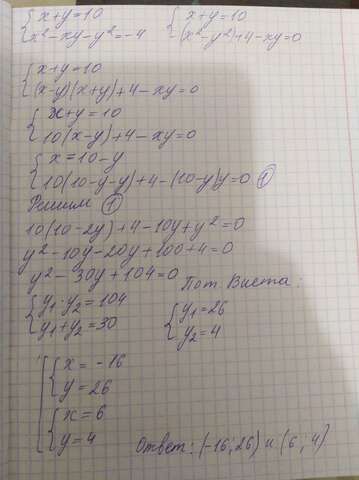 { x+y=10 { x+y=10
{ x²-xy-y²=-4 { (x²-y²)+4-xy=0
{ x+y=10
{ (x-y)(x+y)+4-xy=0
{ x+y=10
{ 10(x-y)+4-xy=0
{ x=10-y
{ 10(10-y-y)+4-(10-y)y=0 ①
Решим ①
10(10-2y)+4-10y+y²=0
y²-10y-20y+100+4=0
y²-30y+104=0
По т. Виета:
{ y₁·y₂=104 { y₁=26
{ y₁+y₂=30 { y₂=4
[ { x=-16
{ y=26
{ x=6
{ y=4
Ответ: (-16; 26) и (6; 4)